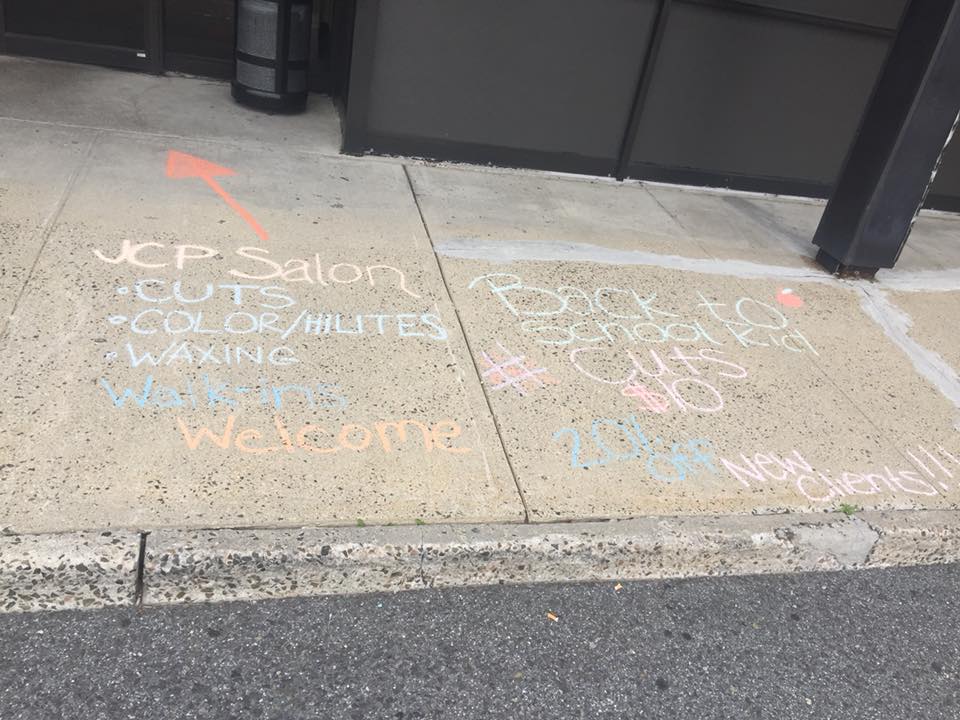 JCP Salon
• CUTS
• COLOR/HILITES
• WAXING
Walk-ins
Welcome
Back to
School Kid
# Cuts
$10
20% off
New
Clients!!!